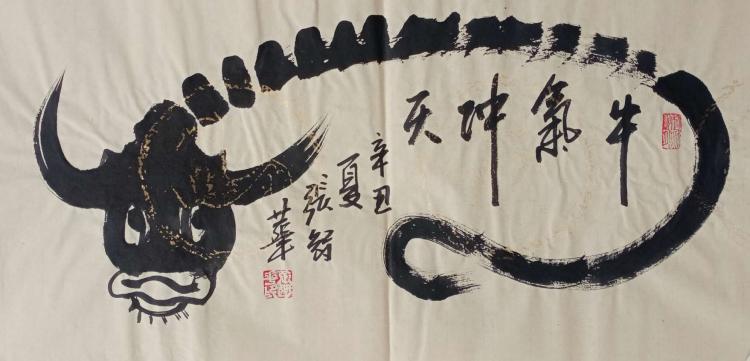 牛氣冲天
辛丑
夏
張智
華